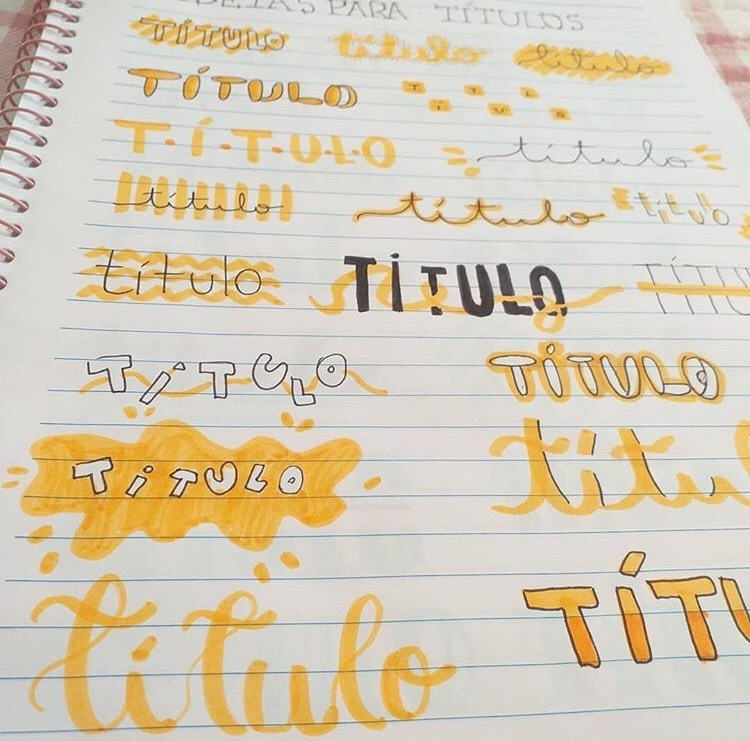 PARA TÍTULOS
TÍTULO título título
TÍTULO TÍTULO
T-Í-T-U-L-O título
título título título
título TÍTULO
TÍTULO TÍTULO
TÍTULO
título